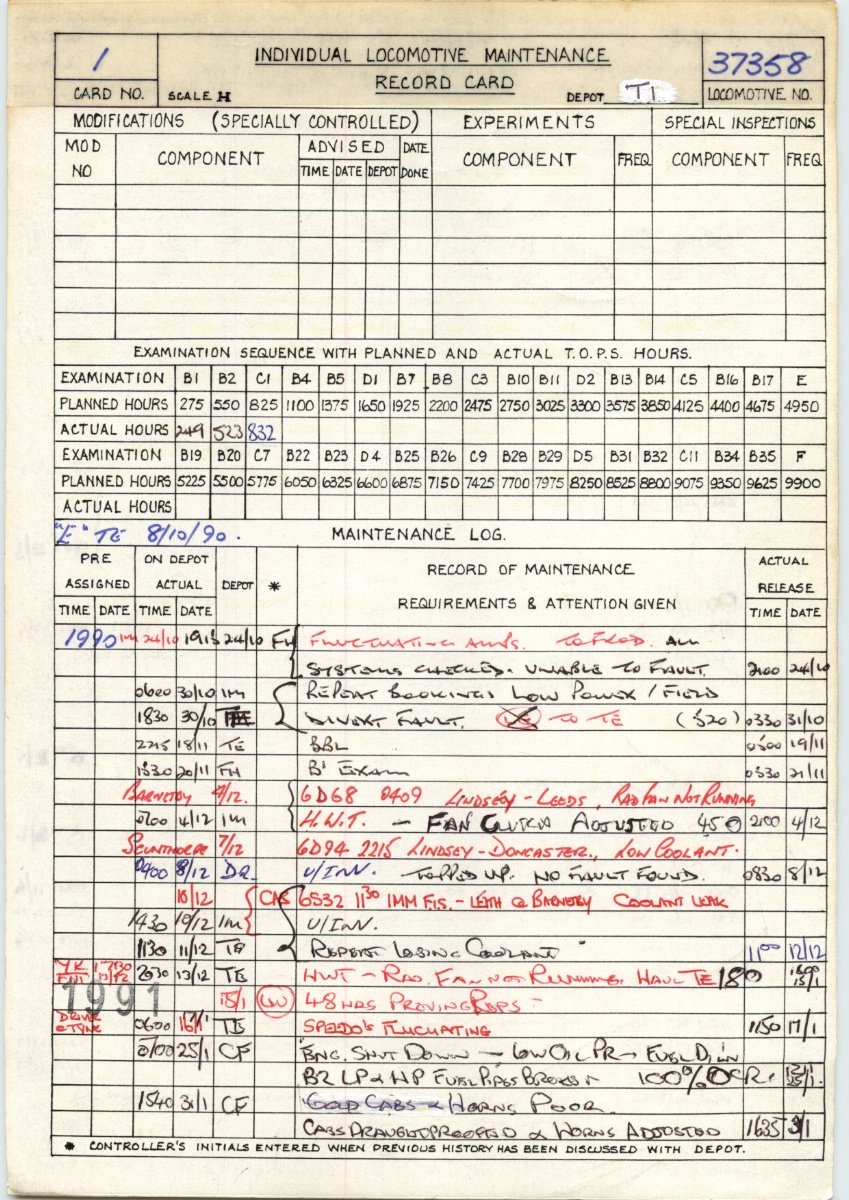 1 INDIVIDUAL LOCOMOTIVE MAINTENANCE 37358
CARD NO. SCALE H RECORD CARD DEPOT TI LOCOMOTIVE NO.
MODIFICATIONS (SPECIALLY CONTROLLED) EXPERIMENTS SPECIAL INSPECTIONS
MOD NO COMPONENT ADVISED DATE DONE COMPONENT FREQ COMPONENT FREQ
TIME DATE DEPOT
EXAMINATION SEQUENCE WITH PLANNED AND ACTUAL T.O.P.S. HOURS.
EXAMINATION B1 B2 C1 B4 B5 D1 B7 B8 C3 B10 B11 D2 B13 B14 C5 B16 B17 E
PLANNED HOURS 275 550 825 1100 1375 1650 1925 2200 2475 2750 3025 3300 3575 3850 4125 4400 4675 4950
ACTUAL HOURS 249 523 832
EXAMINATION B19 B20 C7 B22 B23 D4 B25 B26 C9 B28 B29 D5 B31 B32 C11 B34 B35 F
PLANNED HOURS 5225 5500 5775 6050 6325 6600 6875 7150 7425 7700 7975 8250 8525 8800 9075 9350 9625 9900
ACTUAL HOURS
"E" TE 8/10/90. MAINTENANCE LOG.
PRE ASSIGNED ON DEPOT ACTUAL DEPOT * RECORD OF MAINTENANCE ACTUAL RELEASE
TIME DATE TIME DATE REQUIREMENTS & ATTENTION GIVEN TIME DATE
1990 IM 24/10 1915 24/10 FH FLUCTUATING AMPS. ALL
SYSTEMS CHECKED. UNABLE TO FAULT. 2100 24/10
0600 30/10 IM REPEAT BOOKINGS LOW POWER / FIELD
1830 30/10 DIVERT FAULT. TO TE (520) 0330 31/10
2215 18/11 TE BBL 0500 19/11
1530 20/11 FH B1 EXAM 0530 21/11
BARNETBY 4/12. 6D68 0409 LINDSEY - LEEDS, RAD FAN NOT RUNNING
0700 4/12 IM H.W.T. - FAN CLUTCH ADJUSTED 450 2100 4/12
SCUNTHORPE 7/12 6D94 2215 LINDSEY - DONCASTER., LOW COOLANT.
0400 8/12 DR. U/INV. TOPPED UP. NO FAULT FOUND. 0830 8/12
10/12 6S32 11 30 IMM F.I.S. - LEITH @ BARNETBY COOLANT LEAK
1430 10/12 IM U/INV.
1130 11/12 TE REPEAT LOSING COOLANT 11 00 12/12
13/12 2030 13/12 TE HWT - RAD. FAN NOT RUNNING. HAUL TE 180
1991 15/1 48 HRS PROVING REPS -
DRIVER @ TYNE 0600 16/1 TE SPEEDO'S FLUCTUATING 1150 17/1
0700 25/1 CF ENG. SHUT DOWN - LOW OIL PR - FUEL DIL'N
B2 LP & HP FUEL PIPES BROKEN 100% OCR.
1540 31/1 CF COLD CABS & HORNS POOR.
CABS DRAUGHTPROOFED & HORNS ADJUSTED 1635 31/1
* CONTROLLER'S INITIALS ENTERED WHEN PREVIOUS HISTORY HAS BEEN DISCUSSED WITH DEPOT.